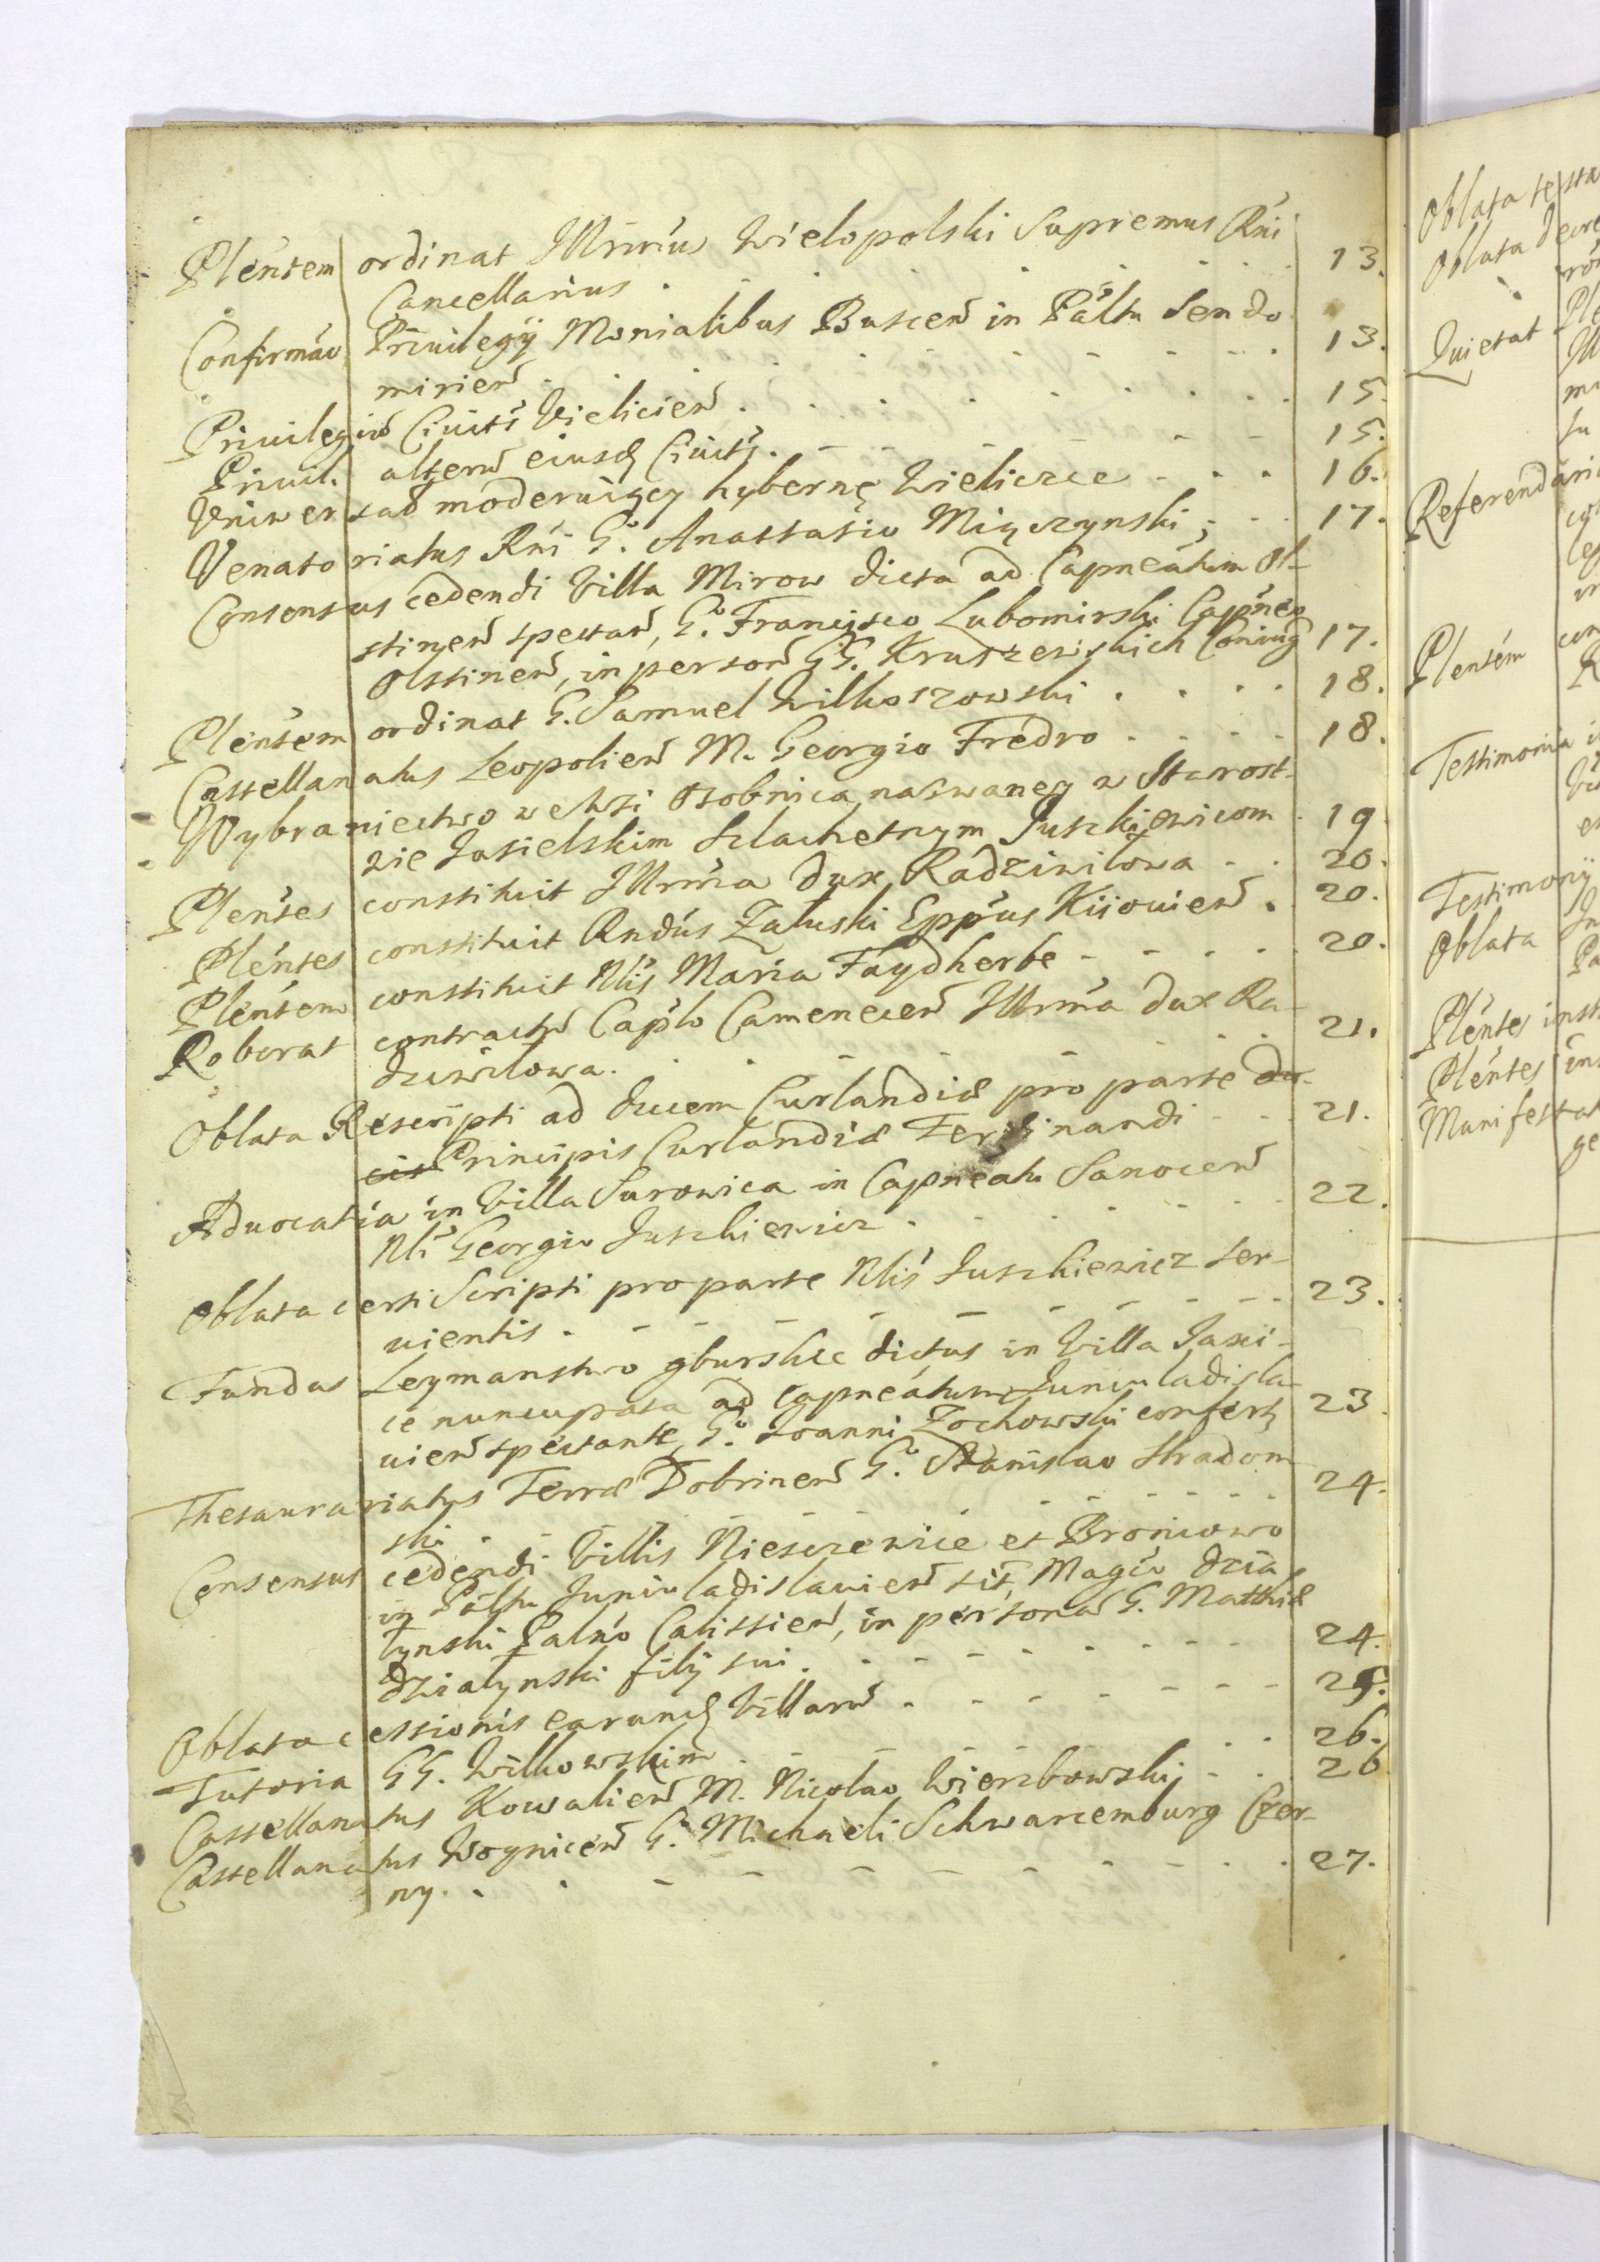 Plentem ordinat Illrmus Wielopolski Supremus Rni
Cancellarius . . . . . . . 13.
Confirmao Priuilegÿ Monialibus Buscen in Paltu Sendo
mirien . . . . . . . 13.
Priuilegiu Ciuits Vielicien . . . . . . 15.
Priuil. alteru eiusd Ciuits. . . . . . 15.
Vniwersał moderuiący hybernę Wieliczce . . . 16.
Venatoriatus Rni G. Anastasio Miączynski . . . 17.
Consensus cedendi Villa Mirow dicta ad Capneatum Ol-
stinen spectan, G. Francisco Lubomirski Capneo
Olstinen, in person GG. Kruszewskich Coniug 17.
Plentem ordinat G. Samuel Wilkoszowski . . . . 18.
Castellanatus Leopolien M. Georgio Fredro . . . . 18.
Wybraniectwo w Wsi Osobnica naswaney w Starost-
wie Jasielskim Szlachetnym Juszkiewicom . 19
Plentes constituit Illrma Dux Radziwiłowa . . 20.
Plentes constituit Rndus Załuski Eppus Kijouien . 20.
Plentem constituit Nlis Maria Faydherbe - - - . . 20.
Roborat contractu Caplo Camenecen Illrma Dux Ra-
dziwiłowa. . . . . . . 21.
Oblata Rescripti ad Ducem Curlandiæ pro parte Du-
cis Principis Curlandiæ Ferdinandi - - - 21.
Aduocatia in Villa Surowica in Capneatu Sanocen
Nli Georgio Juszkiewicz . . . . . . 22.
Oblata certi Scripti pro parte Nlis Juszkiewicz ser-
uientis . - - - - - - - - 23.
Fundus Leymanstwo gburskie dictus in Villa Jaxi-
ce nuncupata ad Capneatum Juniuladisla-
uien spectante, G. Joanni Zochowski confert 23
Thesaurariatus Terræ Dobrinen G. Stanislao Stradom-
ski . . - - - - - - 24.
Consensus cedendi Villis Nieszczewice et Broniowo
in Paltu Juniuladislauien sit, Magco Dzia
łynski Palno Calissien, in persona G. Matthiæ
Działynski filÿ sui . . - - - - - 24.
Oblata cessionis earund Villaru . - - - - - 25.
Tutoria GG. Wilkowskim . . . . . 26.
Castellanatus Kowalien M. Nicolao Wierzbowski - - . 26
Castellanatus Woynicen G. Michaeli Schwarcemburg Czer-
ny. . . - - - - - - - . 27.
Oblata testa
Oblata Decre
Quietat
Referendaria
Plentem
Testimonia
Testimony
Oblata
Plentes inst
Plentes ins
Manifestat
ge